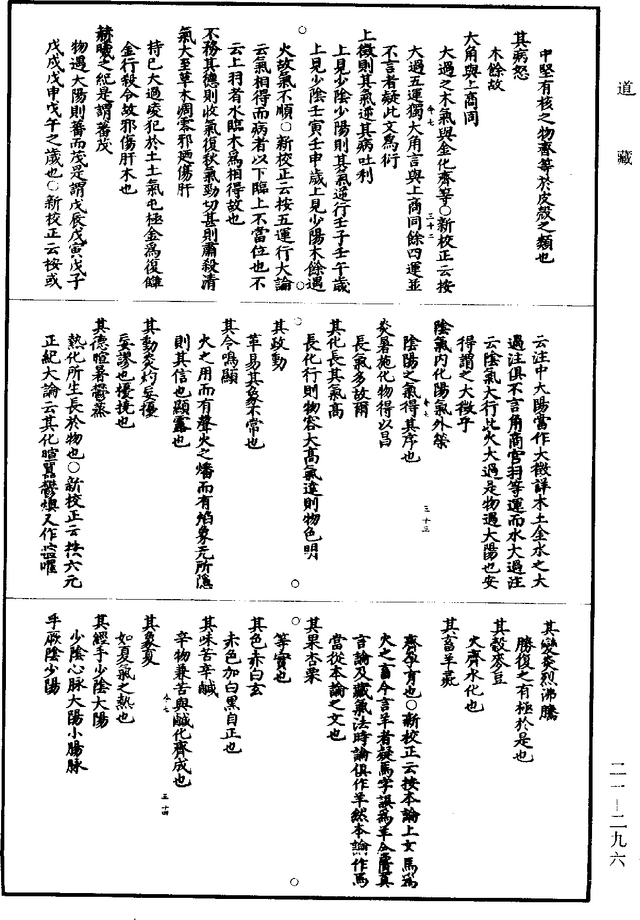 道藏
中堅有核之物齊等於皮殼之類也
其病怒
木餘故
大角與上商同
大過之木氣與金化齊等○新校正云按
大過五運獨大角言與上商同餘四運並
不言者疑此文爲衍
上徵則其氣逆其病吐利
上見少陰少陽則其氣逆行壬子壬午歲
上見少陰壬寅壬申歲上見少陽木餘遇
火故氣不順○新校正云按五運行大論
云氣相得而病者以下臨上不當位也不
云上羽者水臨木爲相得故也
不務其德則收氣復秋氣勁切甚則肅殺清
氣大至草木凋零邪迺傷肝
恃已大過凌犯於土土氣屯極金爲復讎
金行殺令故邪傷肝木也
赫曦之紀是謂蕃茂
物遇大陽則蕃而茂是謂戊辰戊寅戊子
戊戌戊申戊午之歲也○新校正云按或
云注中大陽當作大徵詳木土金水之大
過注俱不言角商宮羽等運而水大過注
云陰氣大行此火大過是物遇大陽也安
得謂之大徵乎
陰氣內化陽氣外榮
陰陽之氣得其序也
炎暑施化物得以昌
長氣多故爾
其化長其氣高
長化行則物容大高氣達則物色明
其政動
革易其象不常也
其令鳴顯
火之用而有聲火之燔而有焰象无所隱
則其信也顯露也
其動炎灼妄擾
妄謬也擾撓也
其德暄暑鬱蒸
熱化所生長於物也○新校正云按六元
正紀大論云其化暄囂鬱燠又作暄曜
其變炎烈沸騰
勝復之有極於是也
其穀麥豆
火齊水化也
其畜羊彘
齊孕育也○新校正云按本論上文馬爲
火之畜今言羊者疑馬字誤爲羊金匱真
言論及藏氣法時論俱作羊然本論作馬
當從本論之文也
其果杏栗
等實也
其色赤白玄
赤色加白黑自正也
其味苦辛鹹
辛物兼苦與鹹化齊成也
其象夏
如夏氣之熱也
其經手少陰大陽
少陰心脉大陽小腸脉
手厥陰少陽
二一—二九六